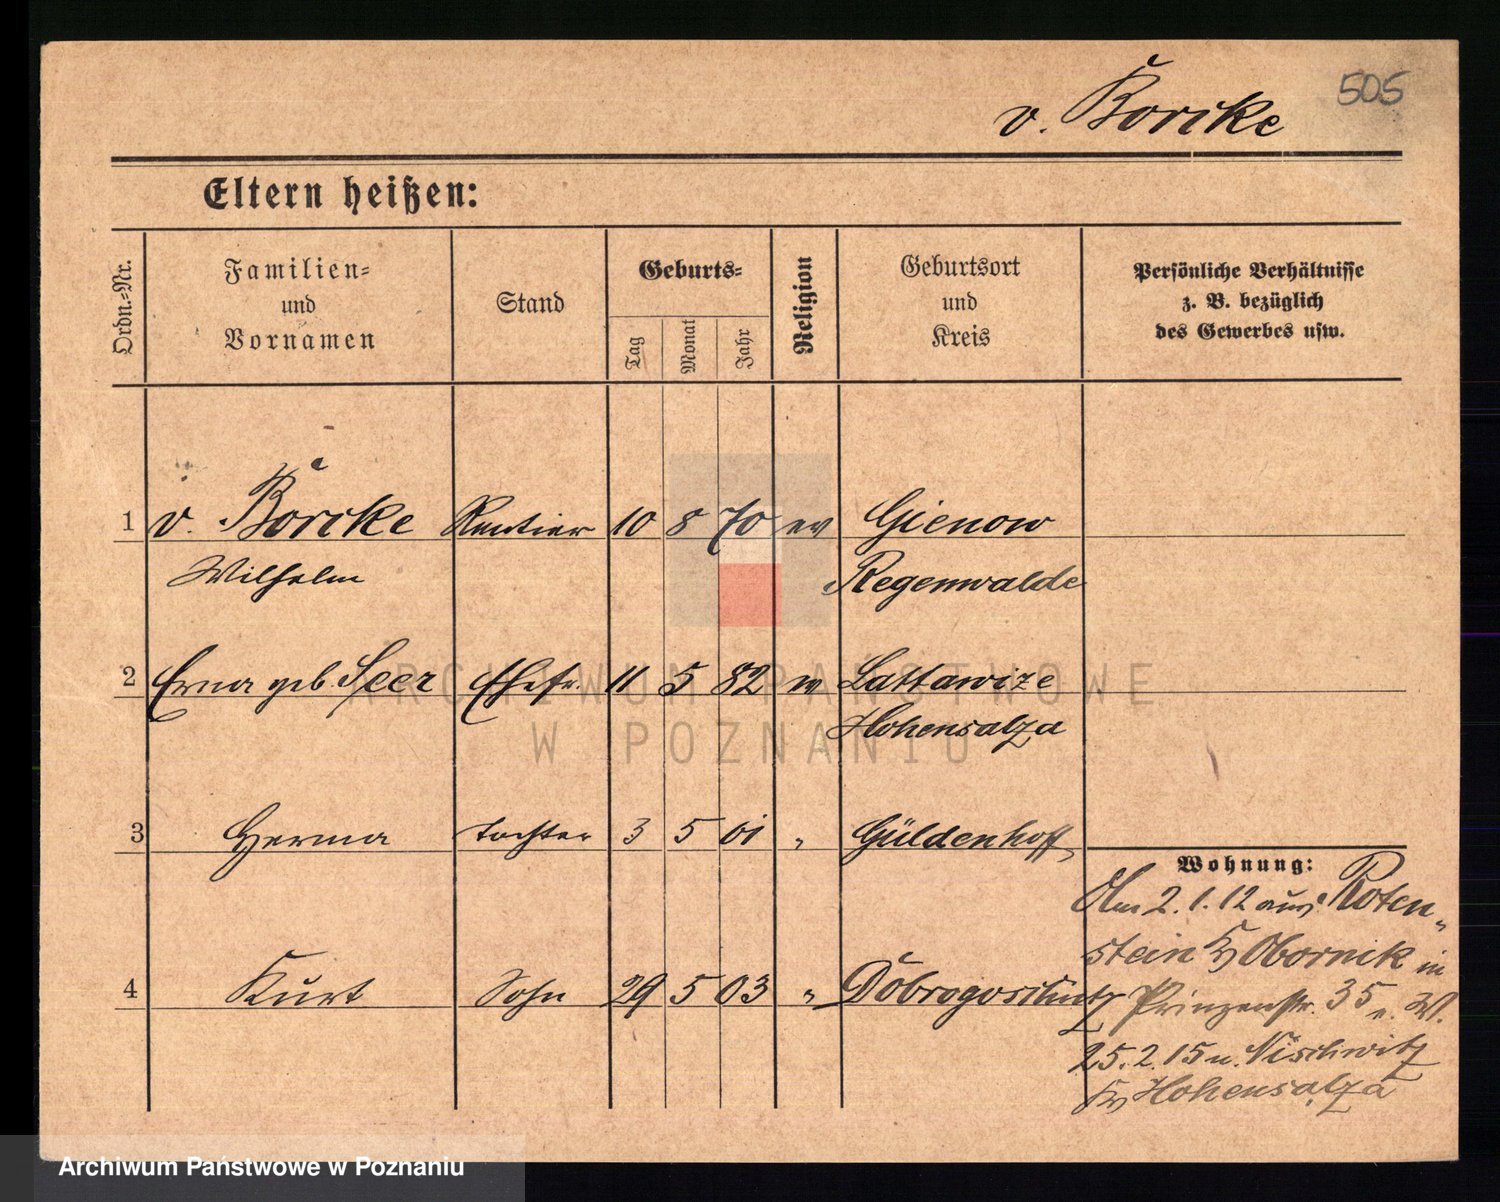 505
v. Borcke
Eltern heißen:
Ordn.-Nr.
Familien-
und
Vornamen
Stand
Geburts-
Tag
Monat
Jahr
Religion
Geburtsort
und
Kreis
Persönliche Verhältnisse
z. B. bezüglich
des Gewerbes usw.
1 v. Borcke Rentier 10 8 70 ev Gienow
Wilhelm Regenwalde
2 Erna geb. Seer Ehefr. 11 5 82 Lattawize
Hohensalza
3 Herma Tochter 3 5 01 " Güldenhoff
4 Kurt Sohn 29 5 03 "
Wohnung:
Am 2. 1. 12 aus Roten-
stein Kr Obornik in
Prinzenstr. 35 v. W.
25. 2. 15 n. Nischwitz
Kr Hohensalza
ARCHIWUM PAŃSTWOWE
W POZNANIU
Archiwum Państwowe w Poznaniu